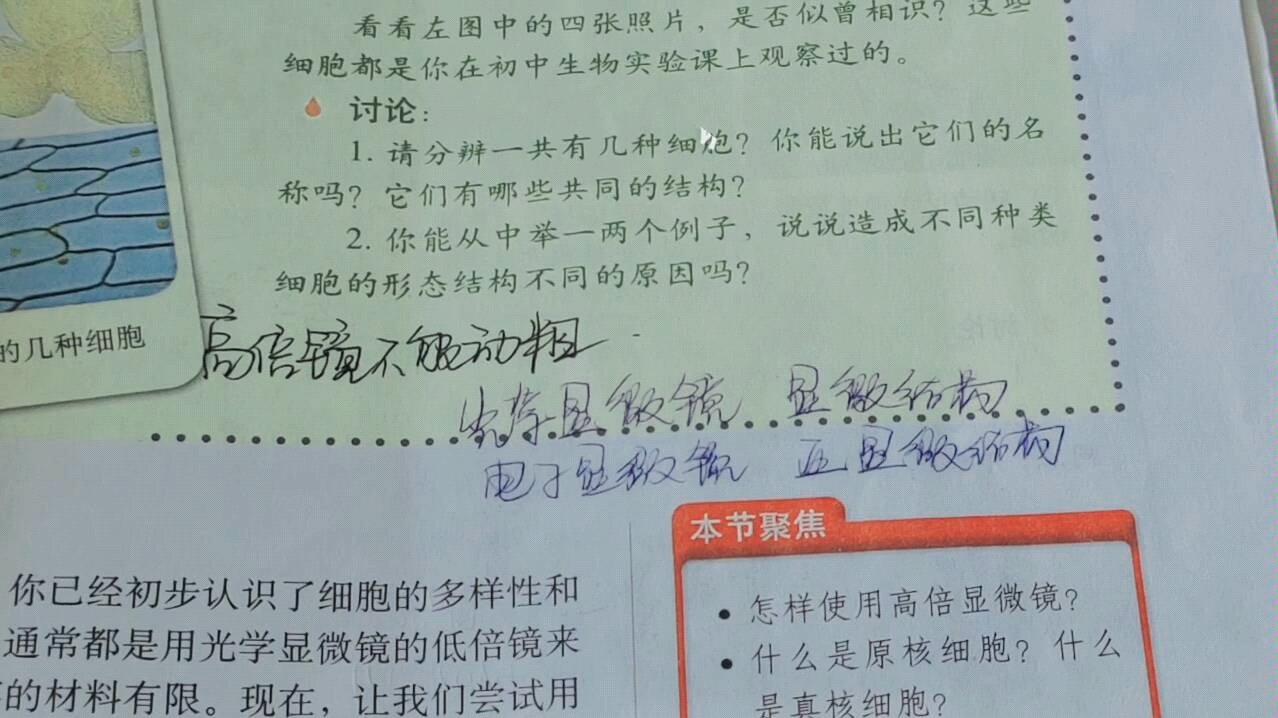 看看左图中的四张照片，是否似曾相识？这些
细胞都是你在初中生物实验课上观察过的。
讨论：
1. 请分辨一共有几种细胞？你能说出它们的名
称吗？它们有哪些共同的结构？
2. 你能从中举一两个例子，说说造成不同种类
细胞的形态结构不同的原因吗？
的几种细胞
高倍镜不能动粗
光学显微镜 显微结构
电子显微镜 亚显微结构
本节聚焦
你已经初步认识了细胞的多样性和
通常都是用光学显微镜的低倍镜来
的材料有限。现在，让我们尝试用
• 怎样使用高倍显微镜？
• 什么是原核细胞？什么
是真核细胞？